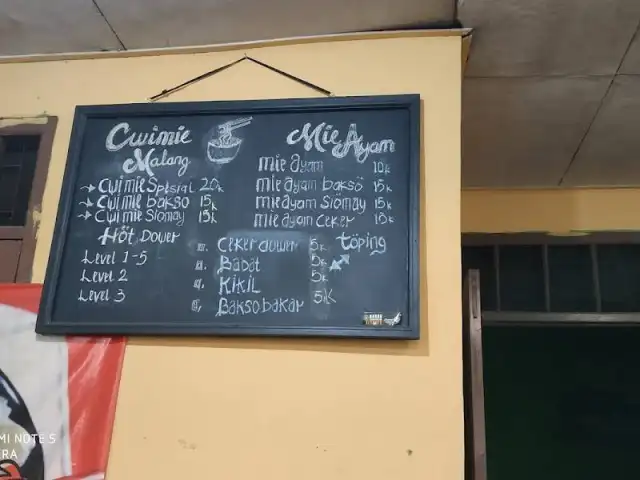 Cwimie
Malang
→ Cwimie Spesial 20k
→ Cwimie bakso 15k
→ Cwimie Siomay 15k
Hot Dower
Level 1-5
Level 2
Level 3
Mie Ayam
mie Ayam 10k
mie ayam bakso 15k
mie ayam Siomay 15k
mie ayam Ceker 15k
Ceker dower 5k
Babat 5k
Kikil 5k
Bakso bakar 5k
töping
MI NOTE 5
ERA